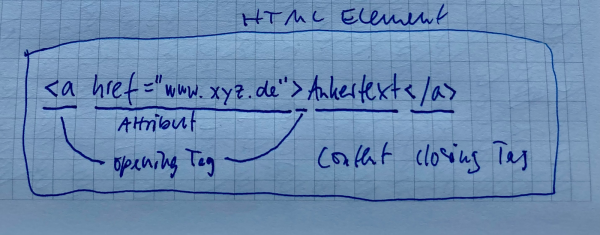 HTML Element
<a href="www.xyz.de">Ankertext</a>
Attribut
opening Tag Content closing Tag